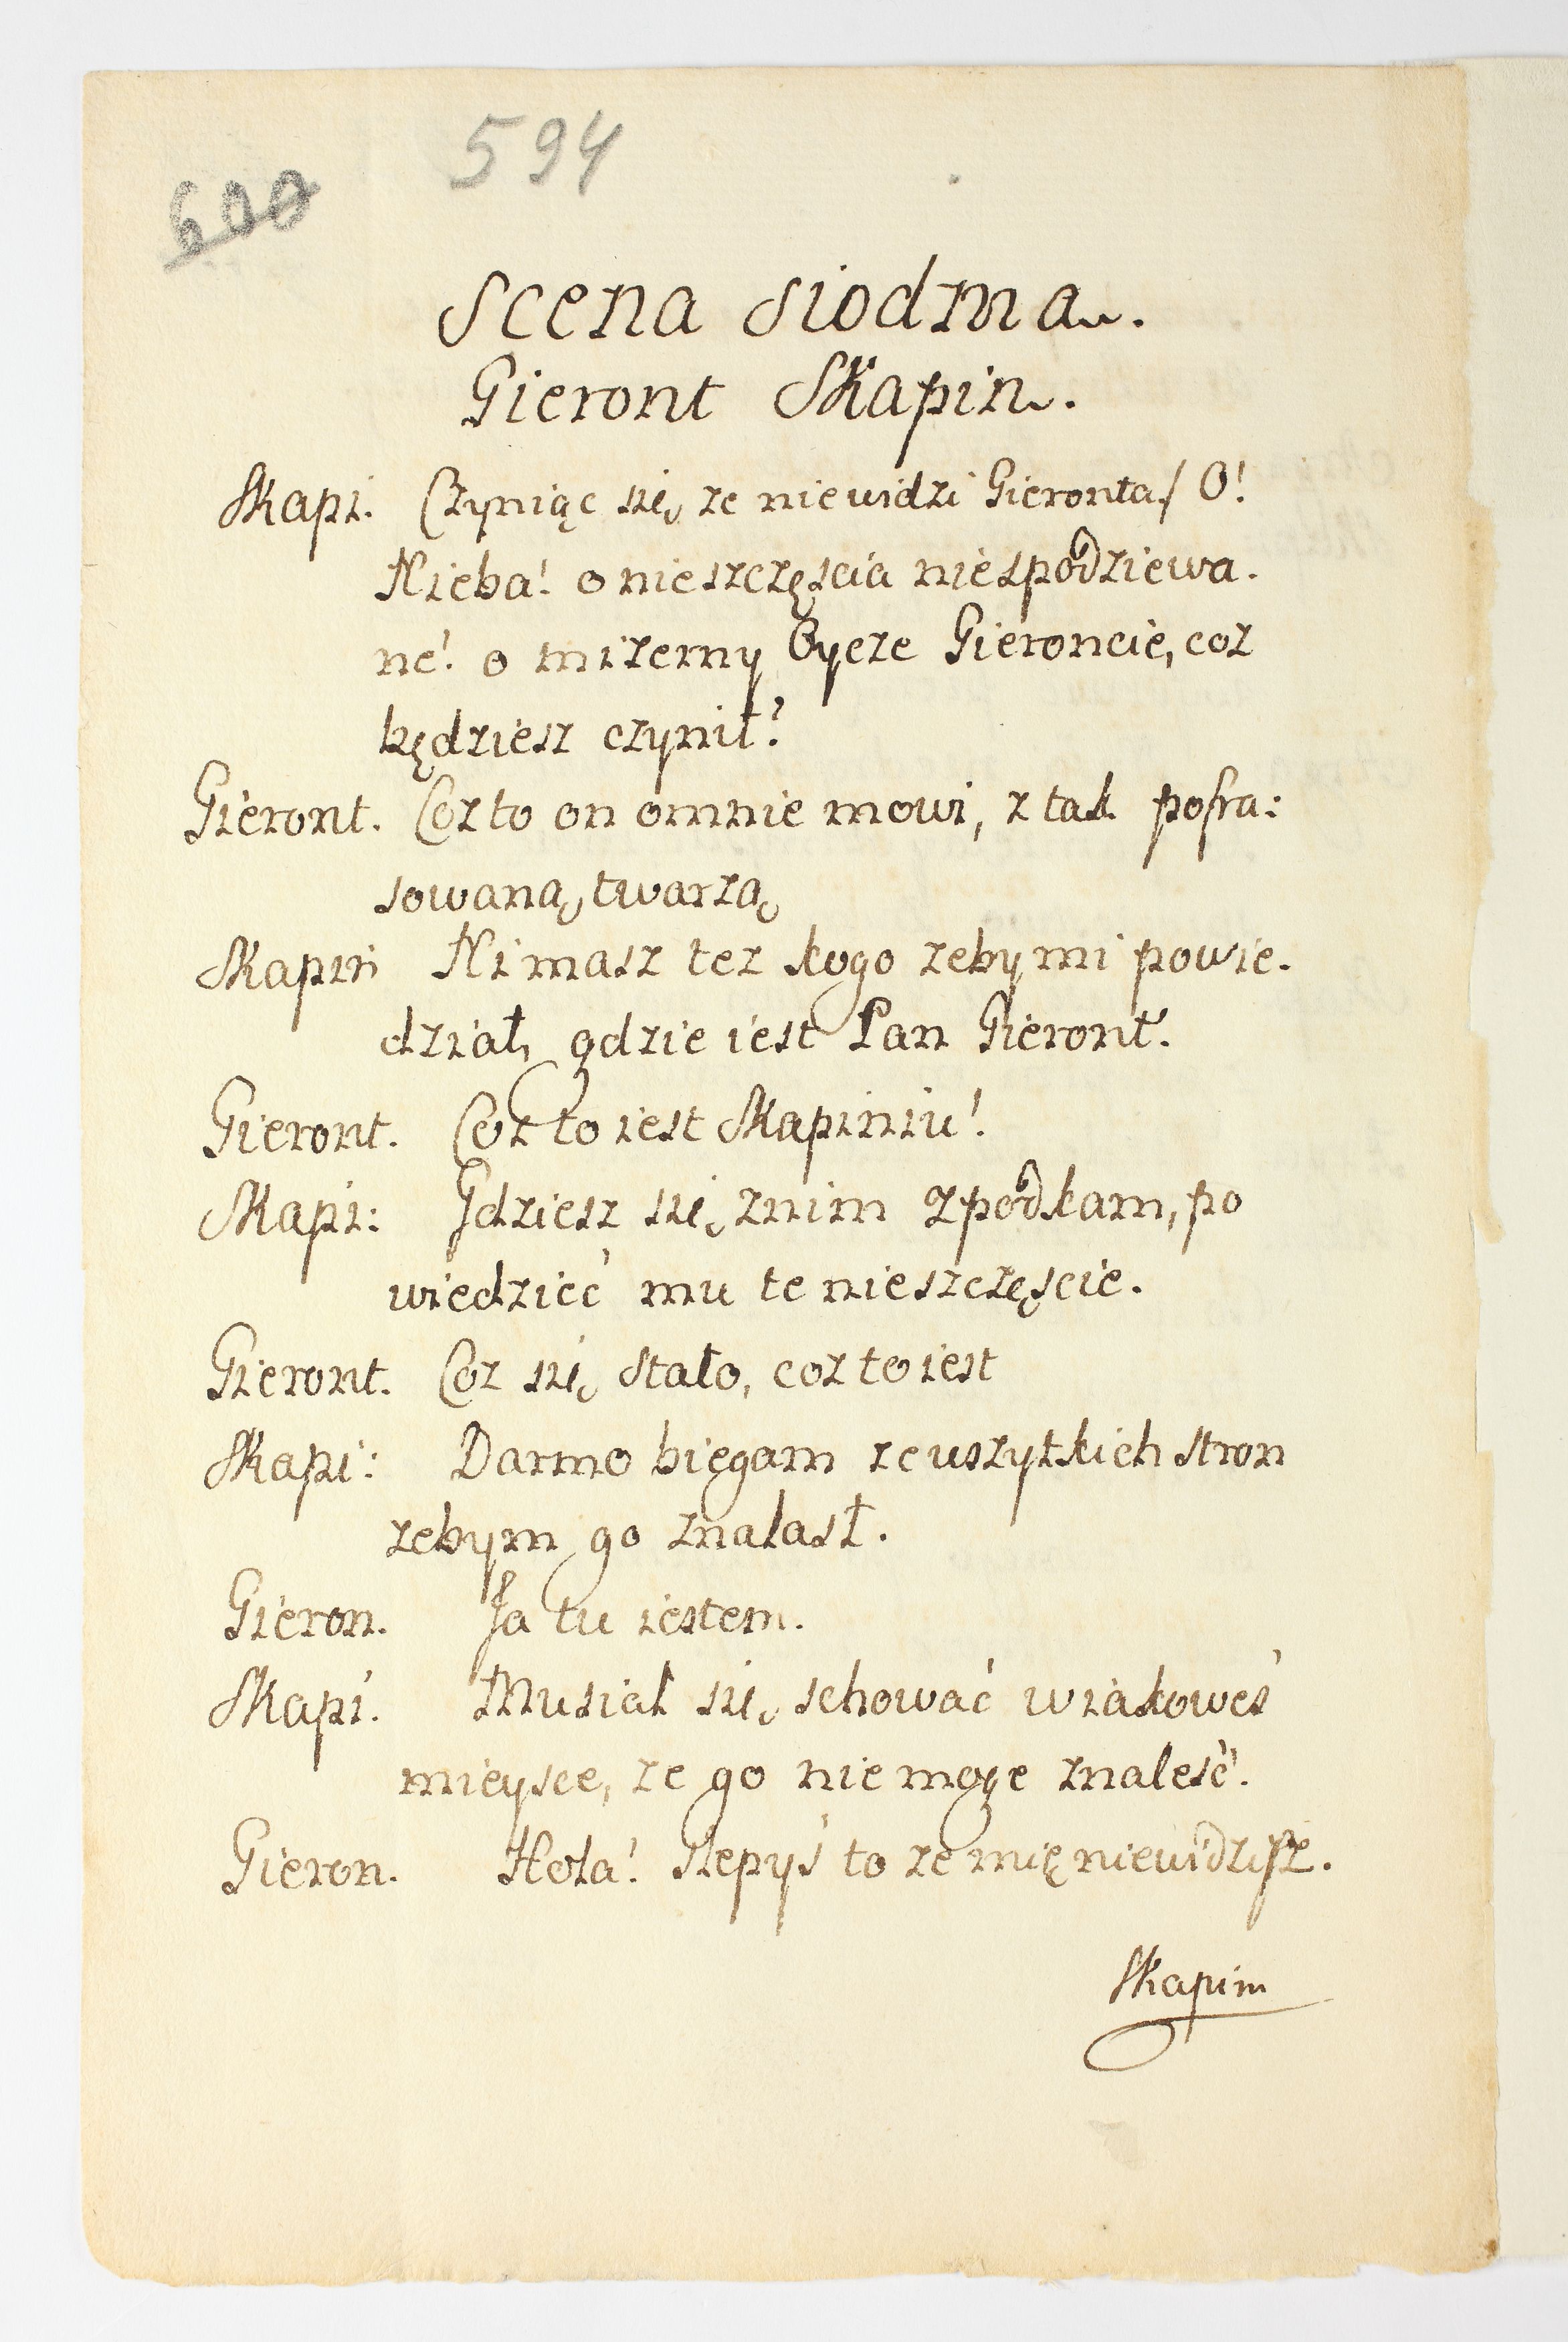 594
600
Scena Siodma.
Gieront Skapin.
Skapi. Czyniąc się ze niewidzi Gieronta / O!
Nieba! o nieszczęscia niespodziewa.
ne! o mizerny Oycze Gieroncie, coz
będziesz czynił?
Gieront. Coz to on omnie mowi, z tak pofra:
sowaną twarzą
Skapin Nimasz tez kogo zeby mi powie.
dział, gdzie iest Pan Gieront.
Gieront. Coz to iest Skapiniu!
Skapi: Gdziesz się znim zpodkam, po
wiedzieć mu te nieszczęscie.
Gieront. Coz się stało, coz to iest
Skapi: Darmo biegam ze uszytkich stron
zebym go znalasł.
Gieron. Ja tu iestem.
Skapi. Musiał się schować w iakoweś
mieysce, ze go nie moge znaleść.
Gieron. Hola! slepyś to ze mię niewidzisz.
Skapin